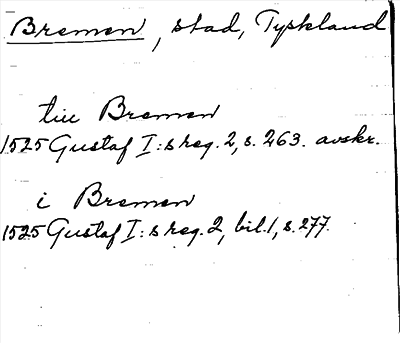 Bremen, stad, Tyskland
till Bremen
1525 Gustaf I:s reg. 2, s. 263. avskr.
i Bremen
1525 Gustaf I:s reg. 2, bil. 1, s. 277.